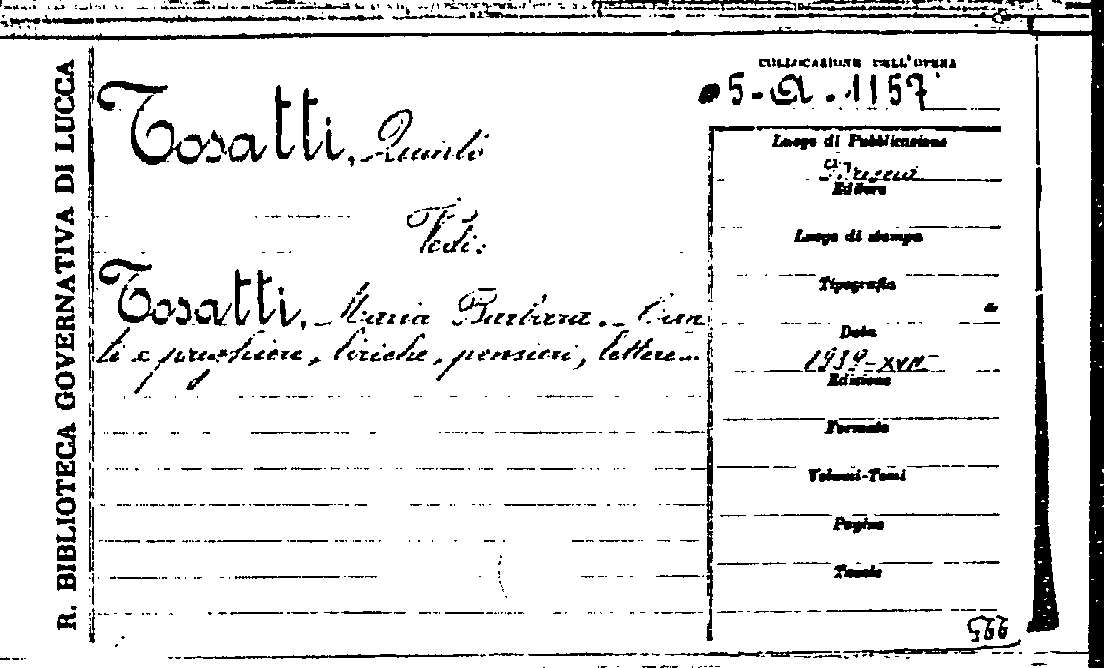 R. BIBLIOTECA GOVERNATIVA DI LUCCA
Tosatti, Quinto
Vedi:
Tosatti, Maria Barbara. - Can
ti e preghiere, liriche, pensieri, lettere...
COLLOCAZIONE DELL'OPERA
5-A.1157
Luogo di Pubblicazione
Brescia
Editore
Luogo di stampa
Tipografia
Data
1939-XVII
Edizione
Formato
Volumi-Tomi
Pagine
Tavole